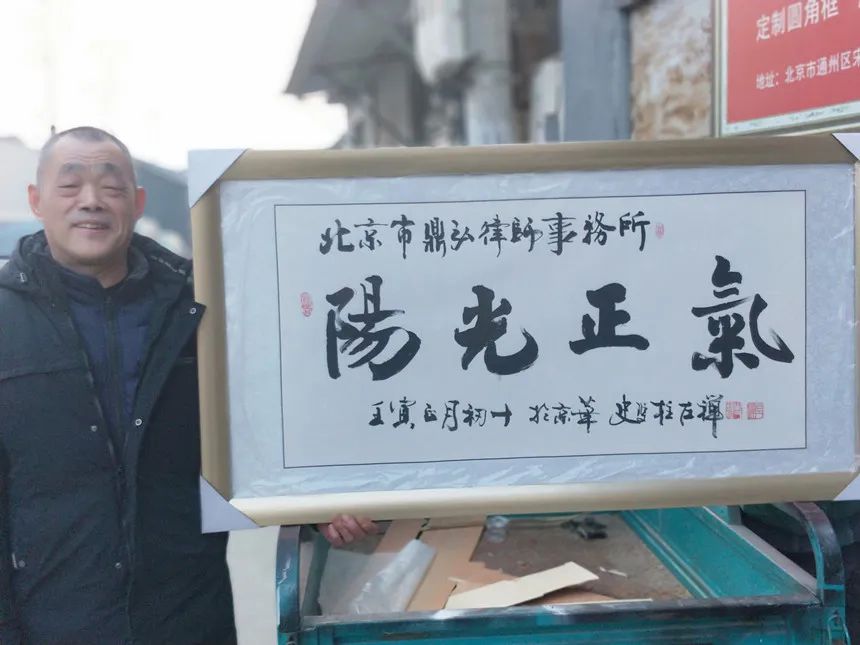 定制圆角框
地址：北京市通州区宋
北京市鼎弘律師事務所
陽光正氣
壬寅正月初十 於京華